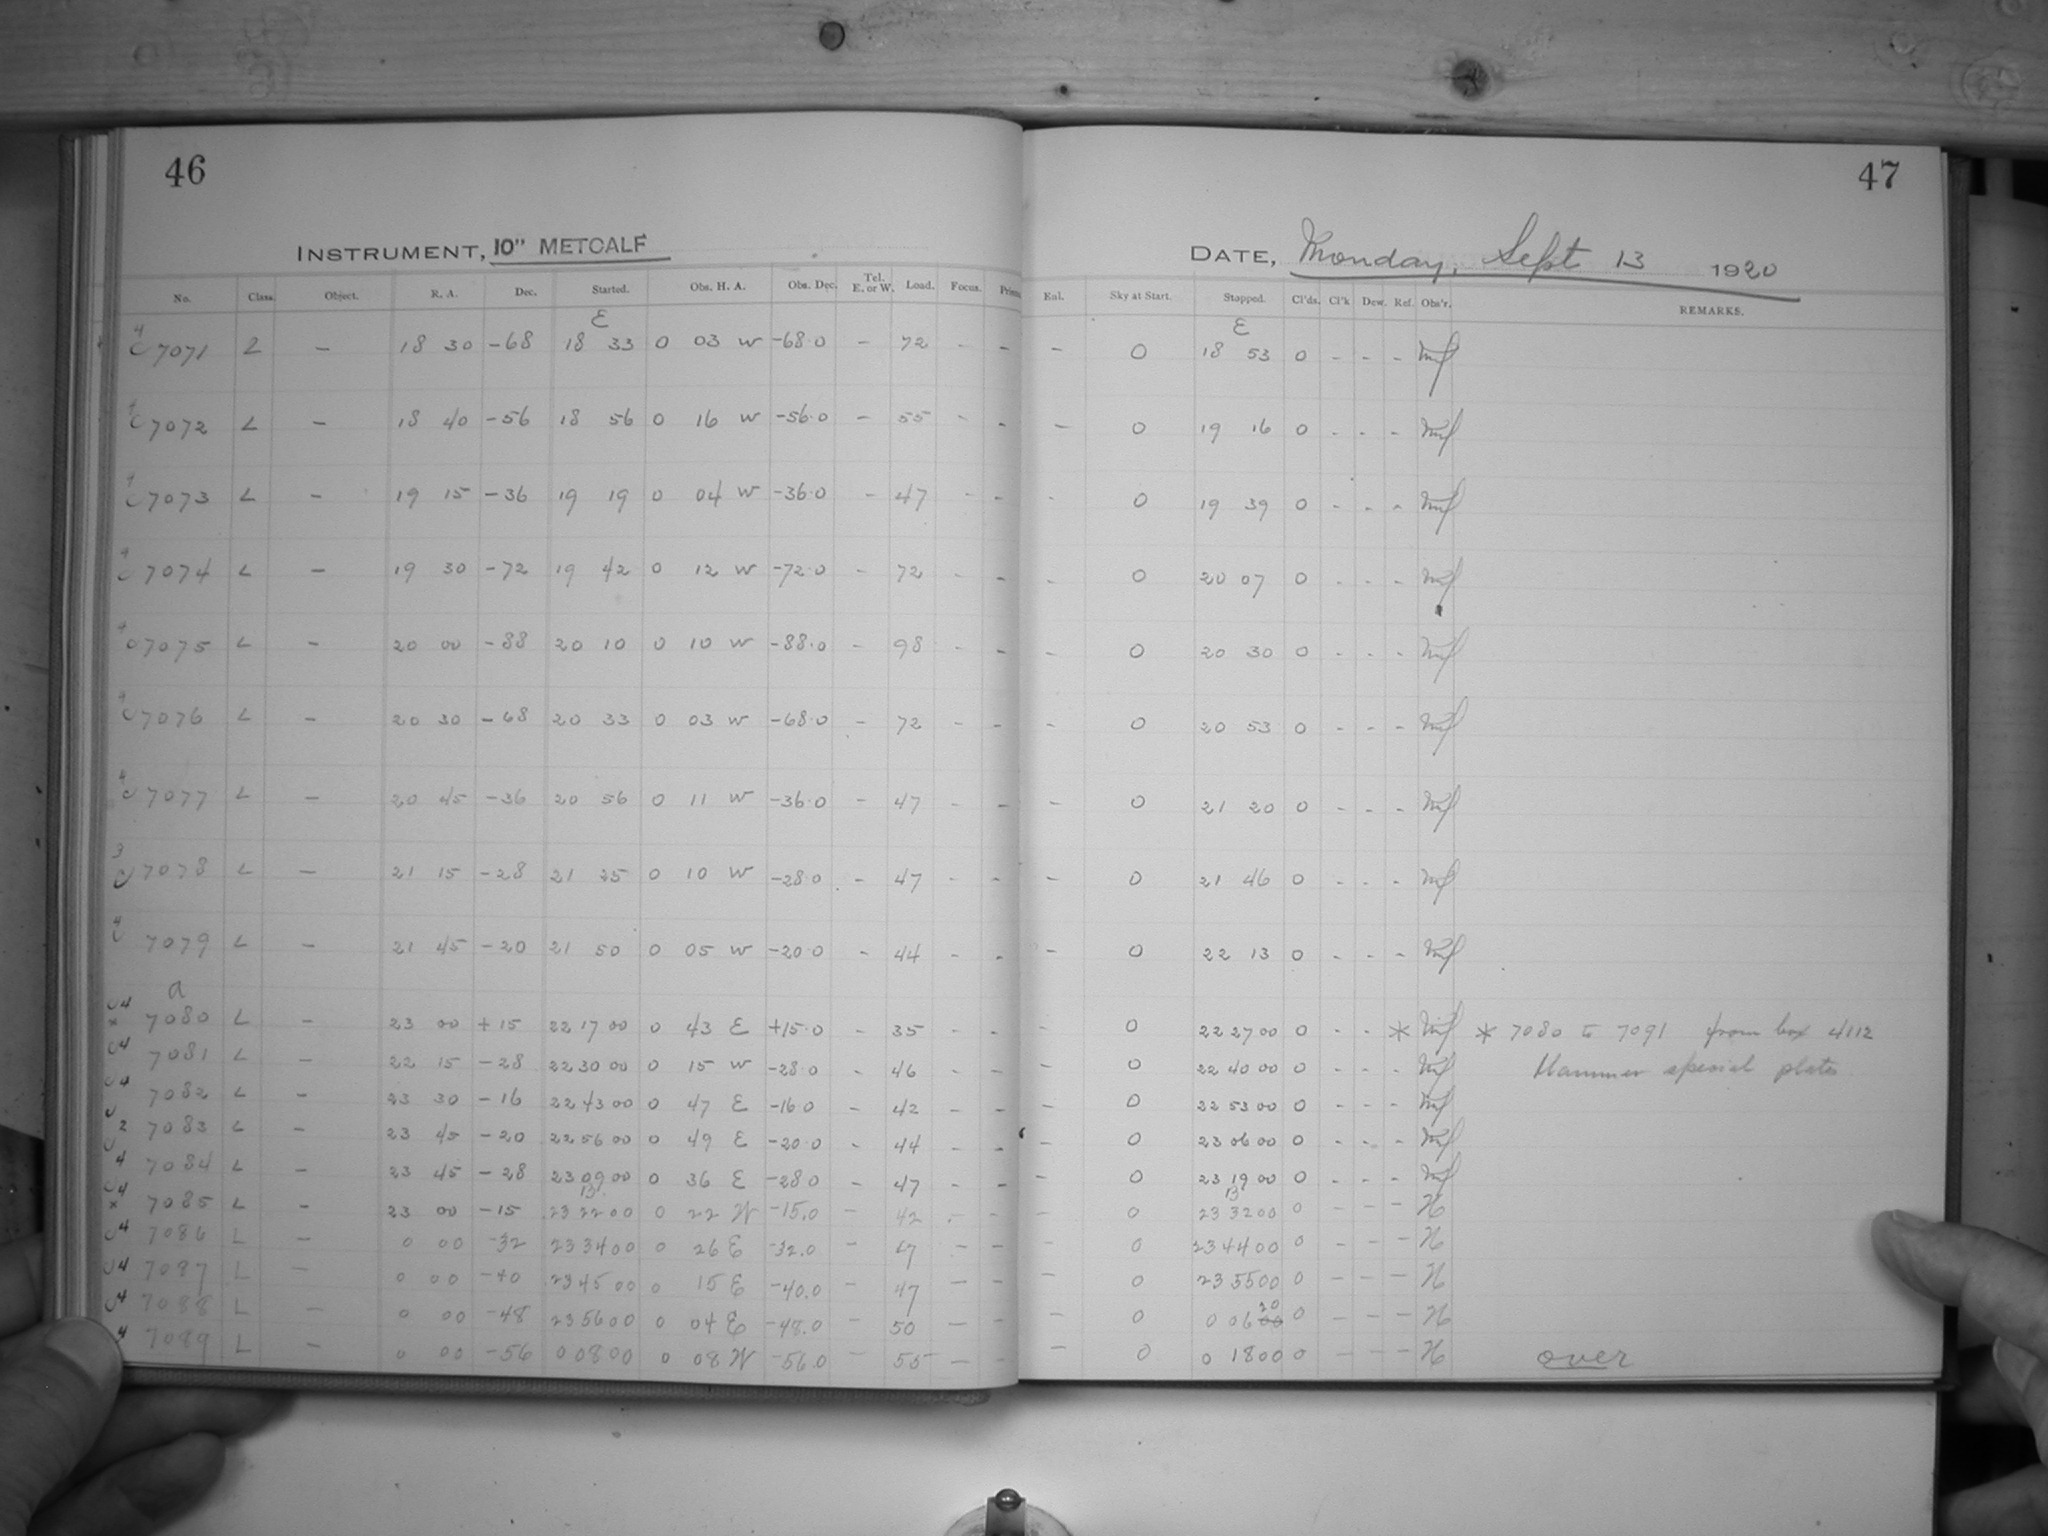 46
47
INSTRUMENT, 10" METCALF
DATE, Monday, Sept 13 1920
No. Class. Object. R. A. Dec. Started. Obs. H. A. Obs. Dec. Tel. E. or W. Load. Focus. Eul. Sky at Start. Stopped. Cl'ds. Cl'k Dew. Ref. Obs'r. REMARKS.
E E
4 7071 L - 18 30 -68 18 33 0 03 W -68.0 - 72 - - - 0 18 53 0 - - -
7072 L - 18 40 -56 18 56 0 16 W -56.0 - 55 - - - 0 19 16 0 - - -
7073 L - 19 15 -36 19 19 0 04 W -36.0 - 47 - - - 0 19 39 0 - - -
7074 L - 19 30 -72 19 42 0 12 W -72.0 - 72 - - - 0 20 07 0 - - -
7075 L - 20 00 -88 20 10 0 10 W -88.0 - 98 - - - 0 20 30 0 - - -
7076 L - 20 30 -68 20 33 0 03 W -68.0 - 72 - - - 0 20 53 0 - - -
4 7077 L - 20 45 -36 20 56 0 11 W -36.0 - 47 - - - 0 21 20 0 - - -
3 7078 L - 21 15 -28 21 25 0 10 W -28.0 - 47 - - - 0 21 46 0 - - -
4 7079 L - 21 45 -20 21 50 0 05 W -20.0 - 44 - - - 0 22 13 0 - - -
a
4 x 7080 L - 23 00 +15 22 17 00 0 43 E +15.0 - 35 - - - 0 22 27 00 0 - - * * 7080 to 7091 from box 4112
4 7081 L - 22 15 -28 22 30 00 0 15 W -28.0 - 46 - - - 0 22 40 00 0 - - - Hammer special plates
4 7082 L - 23 30 -16 22 43 00 0 47 E -16.0 - 42 - - - 0 22 53 00 0 - - -
2 7083 L - 23 45 -20 22 56 00 0 49 E -20.0 - 44 - - - 0 23 06 00 0 - - -
4 7084 L - 23 45 -28 23 09 00 0 36 E -28.0 - 47 - - - 0 23 19 00 0 - - -
B B
4 x 7085 L - 23 00 -15 23 22 00 0 22 W -15.0 - 42 - - - 0 23 32 00 0 - - - H
4 7086 L - 0 00 -32 23 34 00 0 26 E -32.0 - 47 - - - 0 23 44 00 0 - - - H
4 7087 L - 0 00 -40 23 45 00 0 15 E -40.0 - 47 - - - 0 23 55 00 0 - - - H
4 7088 L - 0 00 -48 23 56 00 0 04 E -48.0 - 50 - - - 0 0 06 20 0 - - - H
4 7089 L - 0 00 -56 0 08 00 0 08 W -56.0 - 55 - - - 0 0 18 00 0 - - - H over